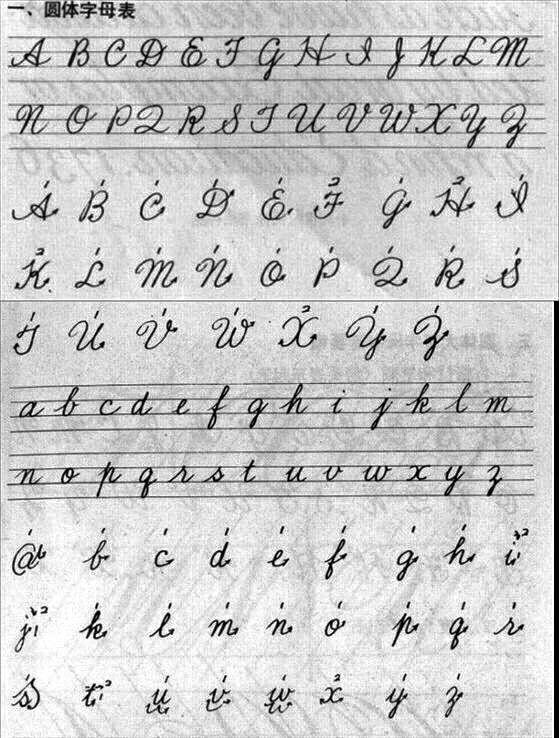 一、圆体字母表
A B C D E F G H I J K L M
N O P Q R S T U V W X Y Z
A B C D E F G H I
K L M N O P Q R S
T U V W X Y Z
a b c d e f g h i j k l m
n o p q r s t u v w x y z
a b c d e f g h i
j k l m n o p q r
s t u v w x y z